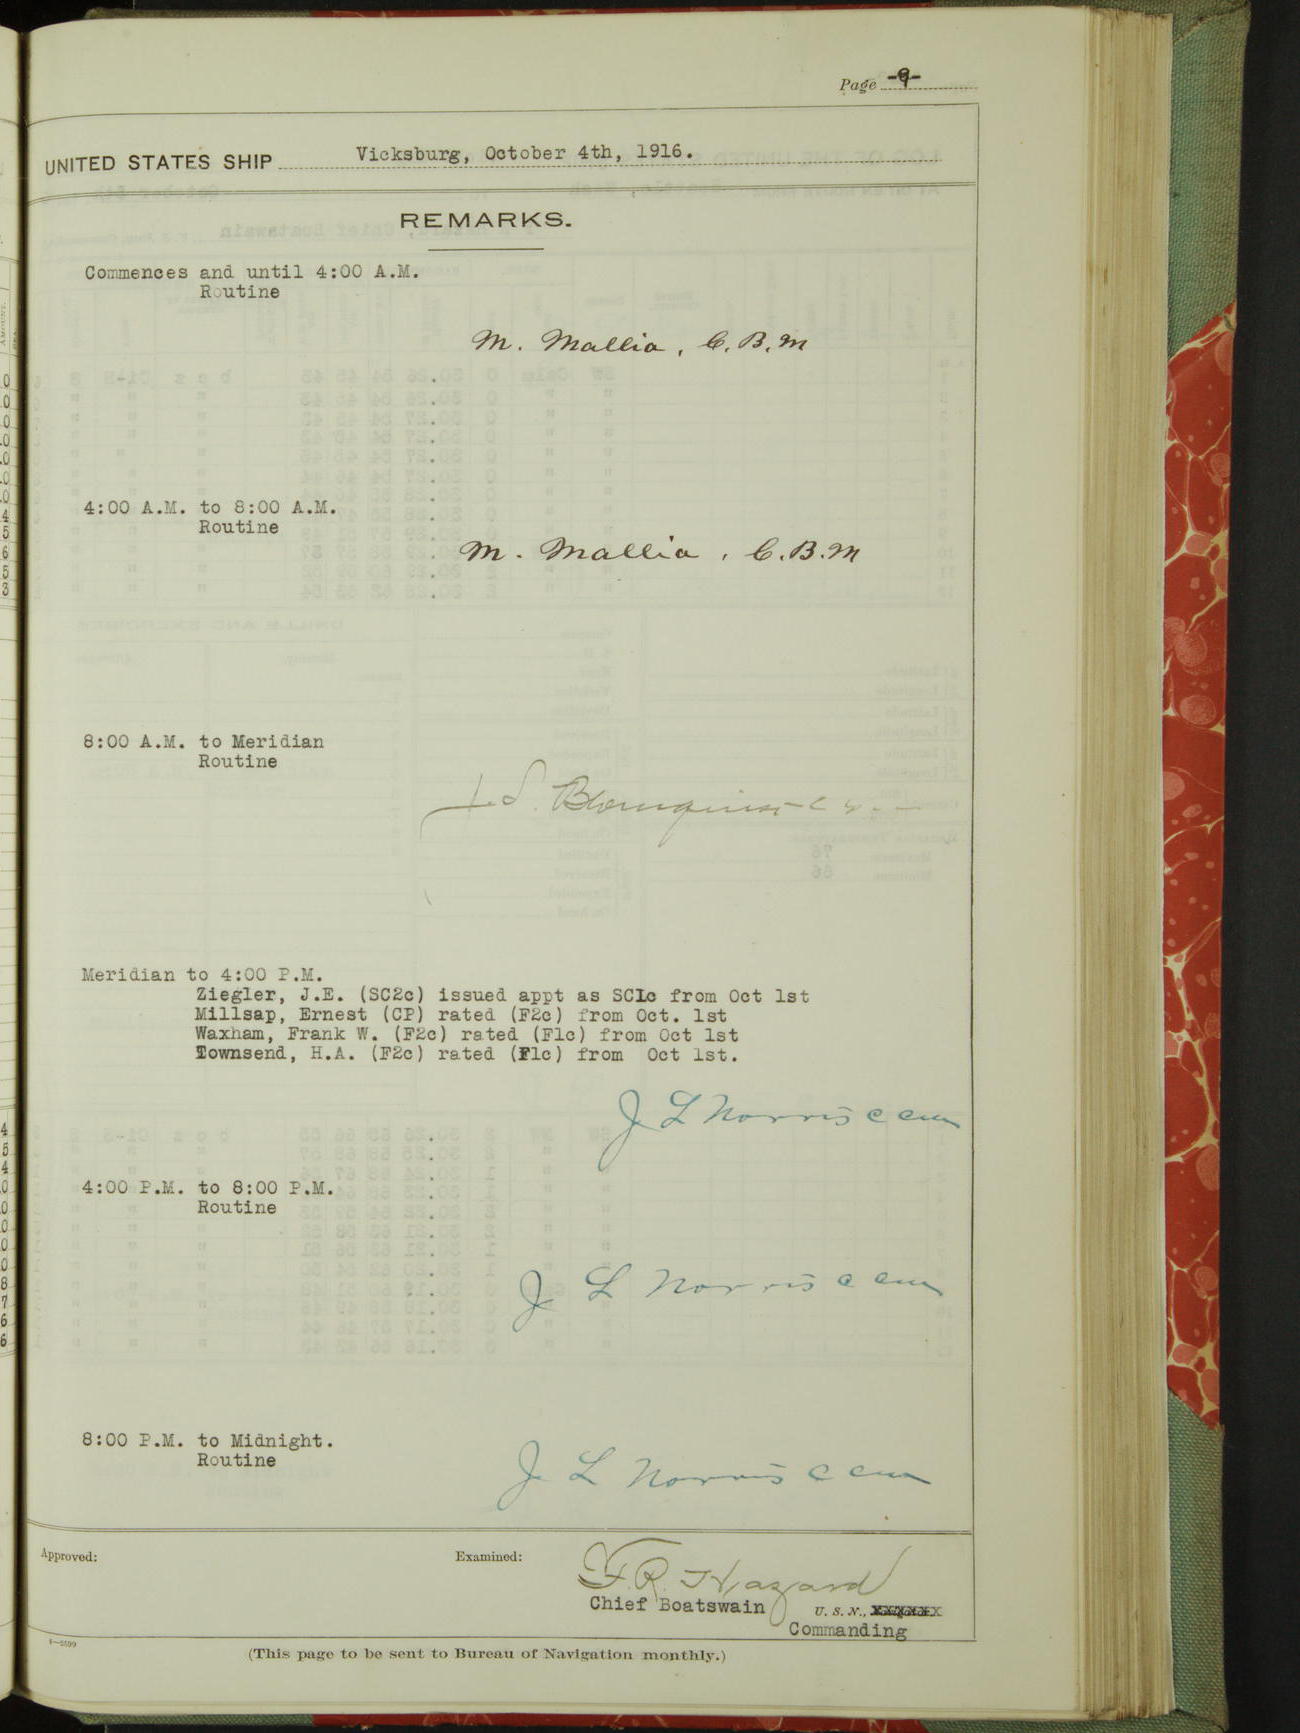 Page -9-
UNITED STATES SHIP Vicksburg, October 4th, 1916.
REMARKS.
Commences and until 4:00 A.M.
Routine
M. Mallia, C.B.M
4:00 A.M. to 8:00 A.M.
Routine
M. Mallia, C.B.M
8:00 A.M. to Meridian
Routine
Meridian to 4:00 P.M.
Ziegler, J.E. (SC2c) issued appt as SC1c from Oct 1st
Millsap, Ernest (CP) rated (F2c) from Oct. 1st
Waxham, Frank W. (F2c) rated (F1c) from Oct 1st
Townsend, H.A. (F2c) rated (F1c) from Oct 1st.
J L Norris
4:00 P.M. to 8:00 P.M.
Routine
J L Norris
8:00 P.M. to Midnight.
Routine
J L Norris
Approved:
Examined:
F.R. Hazard
Chief Boatswain U. S. N.,
Commanding
(This page to be sent to Bureau of Navigation monthly.)